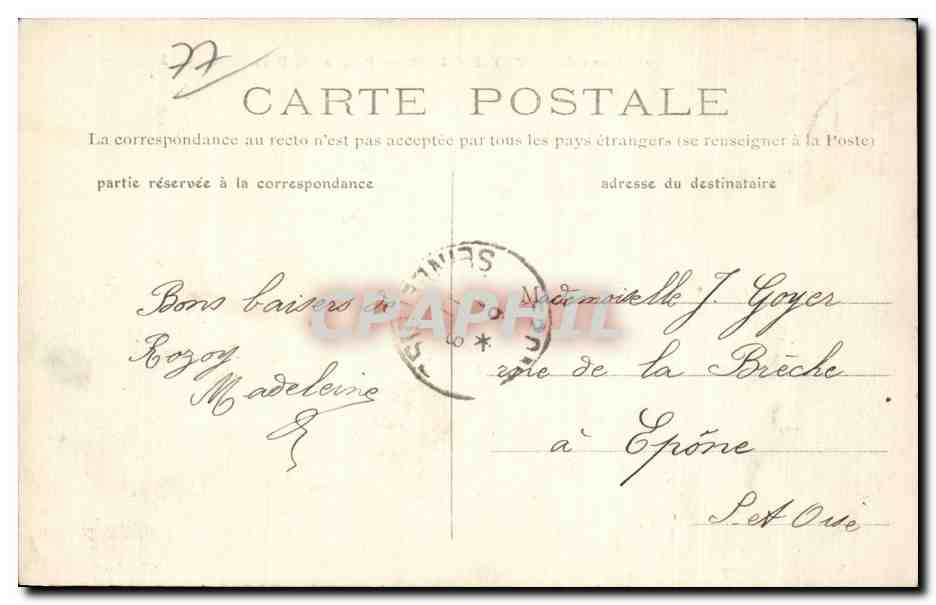 77
CARTE POSTALE
La correspondance au recto n'est pas acceptée par tous les pays étrangers (se renseigner à la Poste)
partie réservée à la correspondance
adresse du destinataire
Bons baisers de
Rozoy
Madeleine
Mademoiselle J. Goyer
rue de la Brèche
à Epône
S. et Oise
SEINE
CPAPHIL